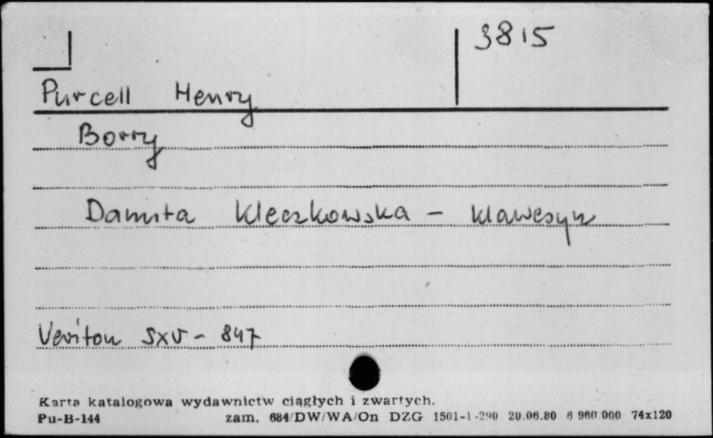 3815
Purcell Henry
Borry
Danuta Kleczkowska - klawesyn
Veriton SXV - 847
Karta katalogowa wydawnictw ciągłych i zwartych.
Pu-B-144 zam. 684/DW/WA/On DZG 1501-1-290 20.06.80 6 960 000 74x120